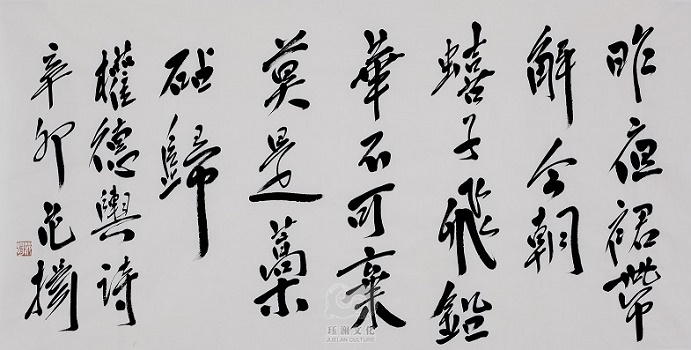 昨夜裙帶
解今朝
蟢子飛鉛
華不可棄
莫是藁
砧歸
權德輿詩
辛卯
珏澜文化
JUELAN CULTURE